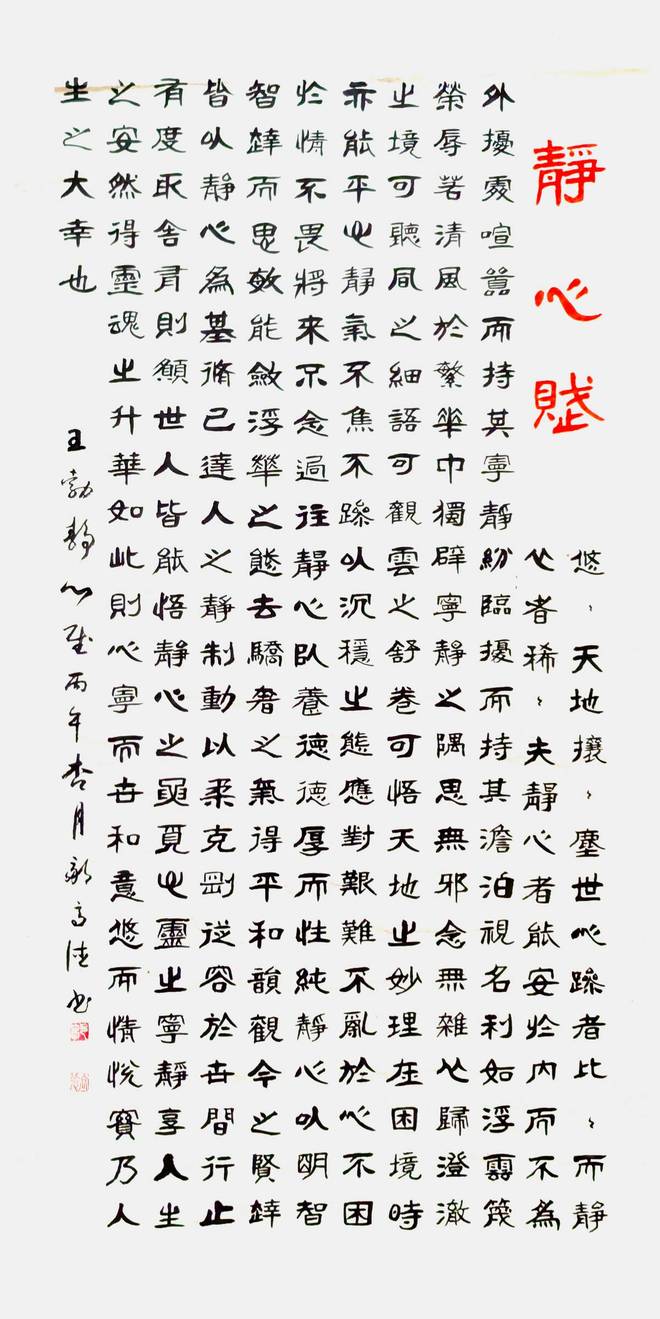 靜心賦
悠〻天地攘〻塵世心躁者比〻而靜
心者稀〻夫靜心者能安於内而不為
外擾處喧囂而持其寧靜紛臨擾而持其澹泊視名利如浮雲篾
榮辱若清風於繁華中獨辟寧靜之隅思無邪念無雜心歸澄澈
之境可聽風之細語可觀雲之舒卷可悟天地之妙理在困境時
亦能平心靜氣不焦不躁以沉穩之態應對艱難不亂於心不困
於情不畏將來不念過往靜心臥養德德厚而性純靜心以明智
智而思敏能斂浮華之態去驕奢之氣得平和韻觀今之賢
皆以靜心為基脩己達人之靜制動以柔克剛從容於世間行止
有度取舍有則願世人皆能悟靜心之奧覓心靈之寧靜享人生
之安然得靈魂之升華如此則心寧而世和意悠而情悅實乃人
生之大幸也
王勃靜心賦丙午杏月高書